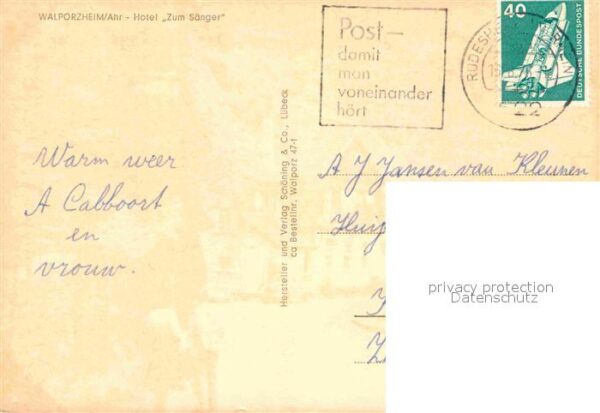 WALPORZHEIM/Ahr - Hotel „Zum Sänger"
Post-
damit
man
voneinander
hört
RÜDESHE
40
DEUTSCHE BUNDESPOST
Hersteller und Verlag Schöning & Co., Lübeck
ca Bestellnr. Walporz 47-1
Warm weer
A Cabboort
en
vrouw.
A J Jansen van Kleunen
privacy protection
Datenschutz